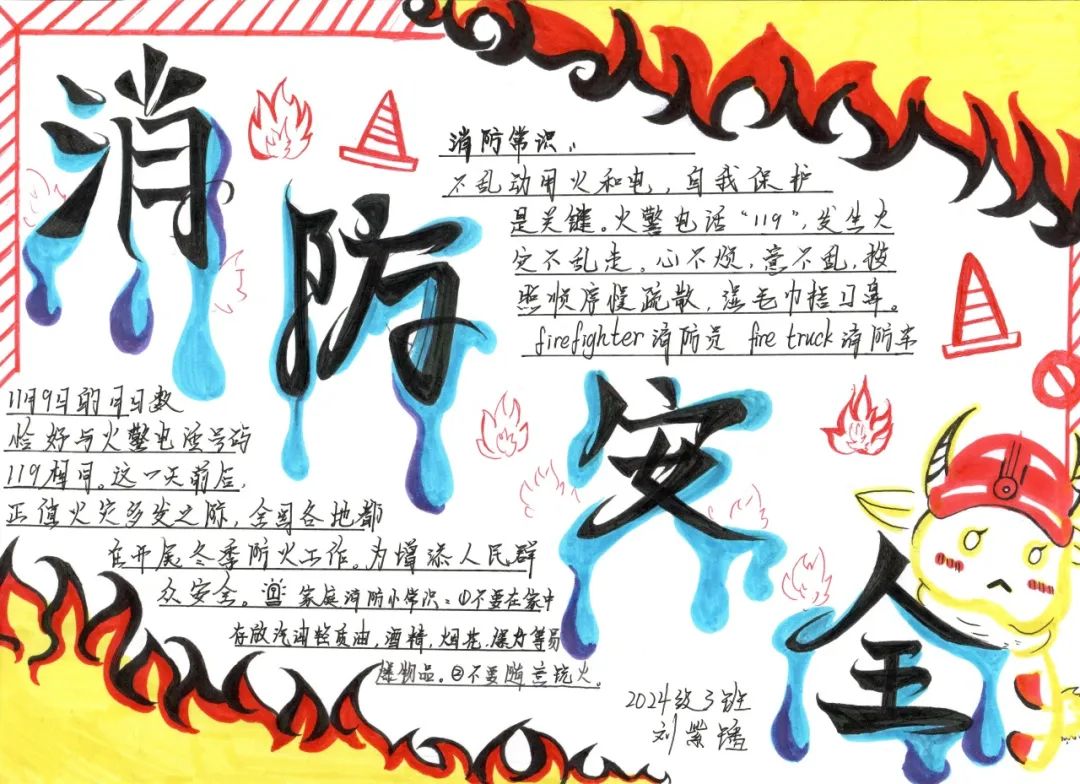 消防安全
消防常识：
不乱动用火和电，自我保护
是关键。火警电话“119”，发生火
灾不乱走。心不烦，意不乱，按
照顺序慢疏散，湿毛巾捂口鼻。
firefighter 消防员 fire truck 消防车
11月9日的月日数
恰好与火警电话号码
119相同。这一天前后，
正值火灾多发之际，全国各地都
在开展冬季防火工作。为增添人民群
众安全。家庭消防小常识：①不要在家中
存放汽油轻质油，酒精，烟花，爆力等易
爆物品。②不要随意玩火。
2024级3班
刘紫